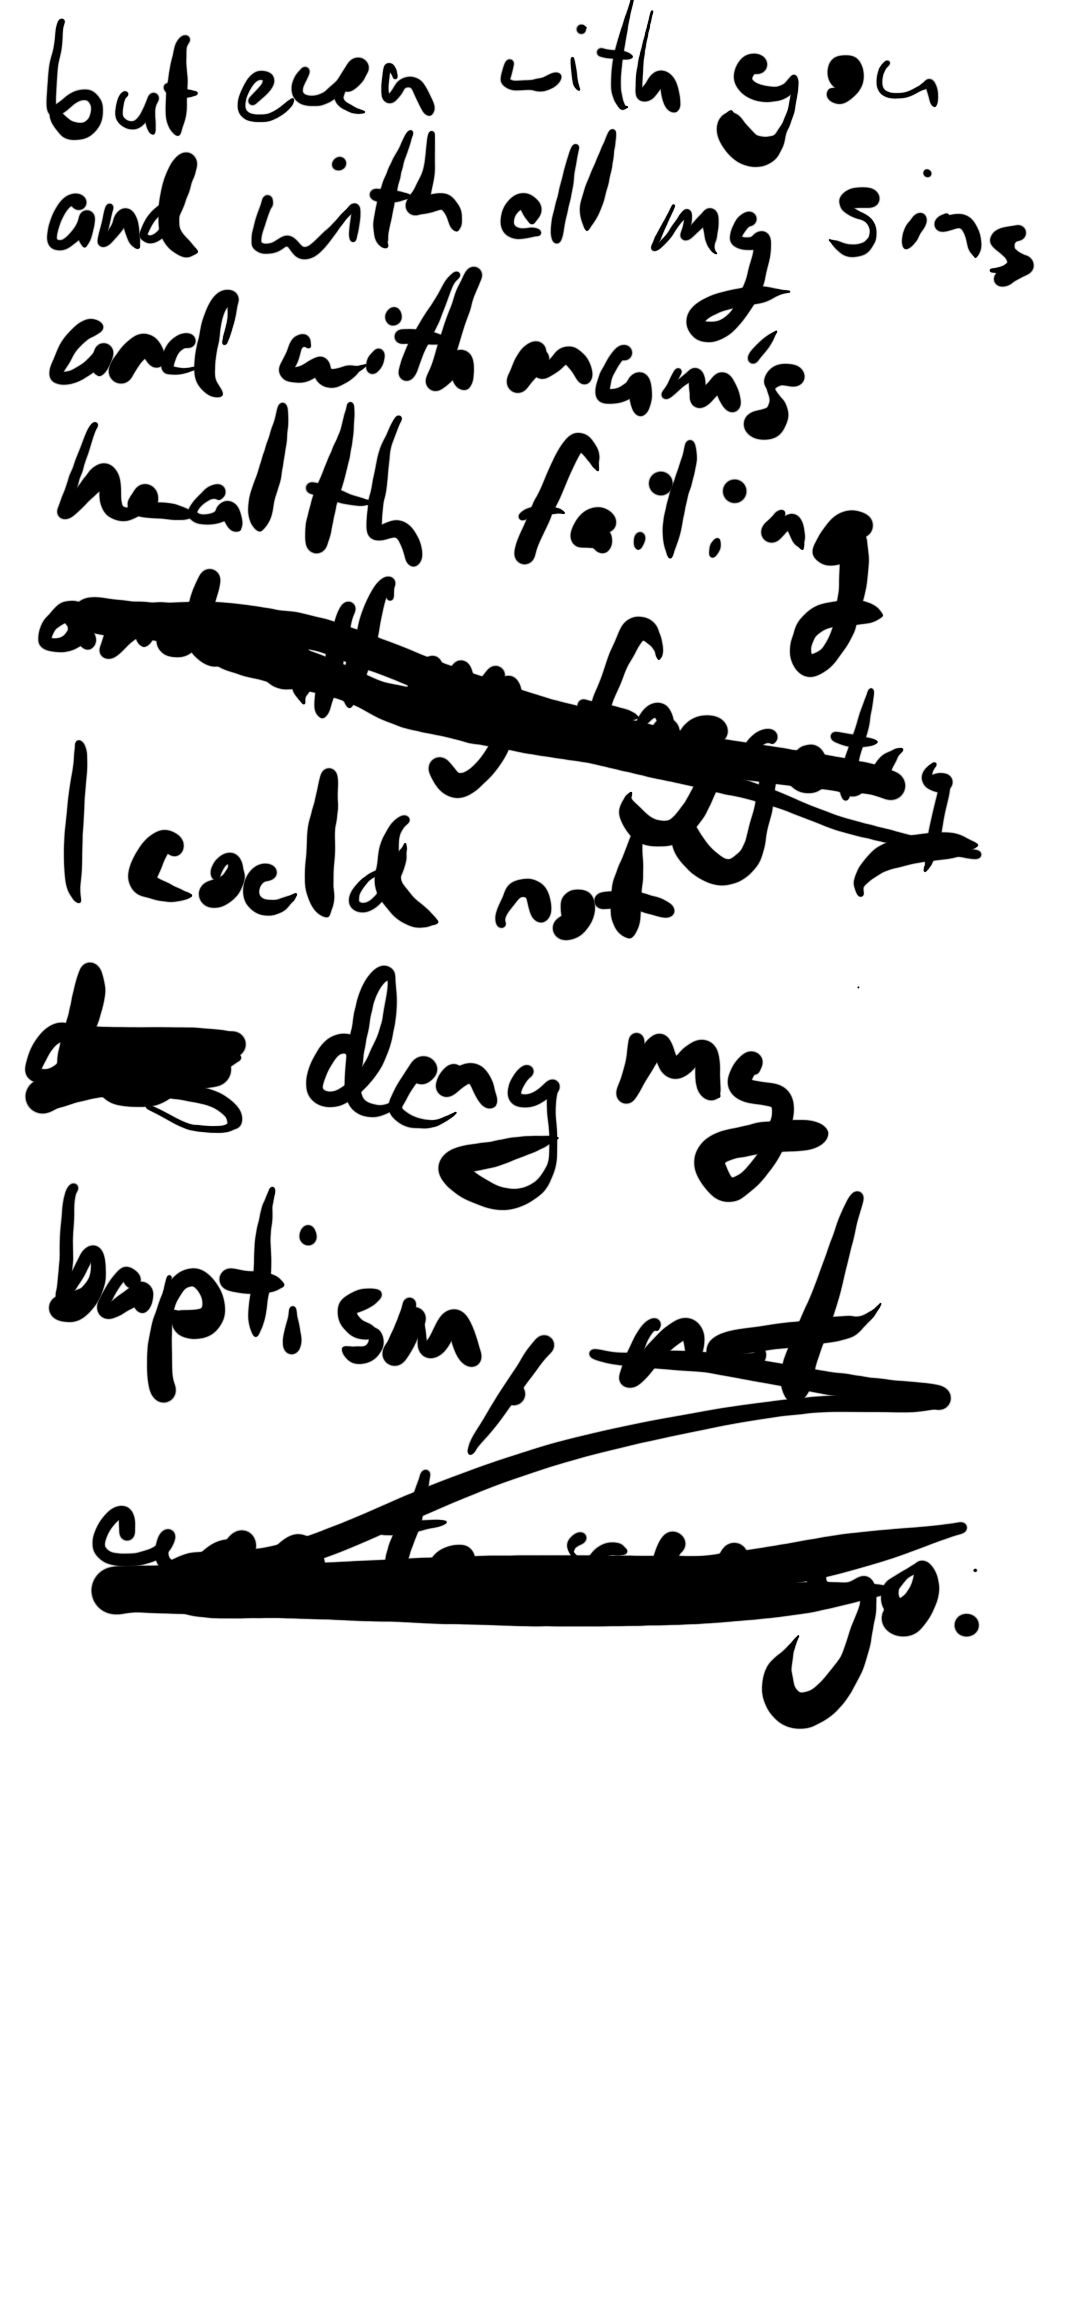 but even with you
and with all my sins
and with mam's
health failing
I could not
deny my
baptism, not